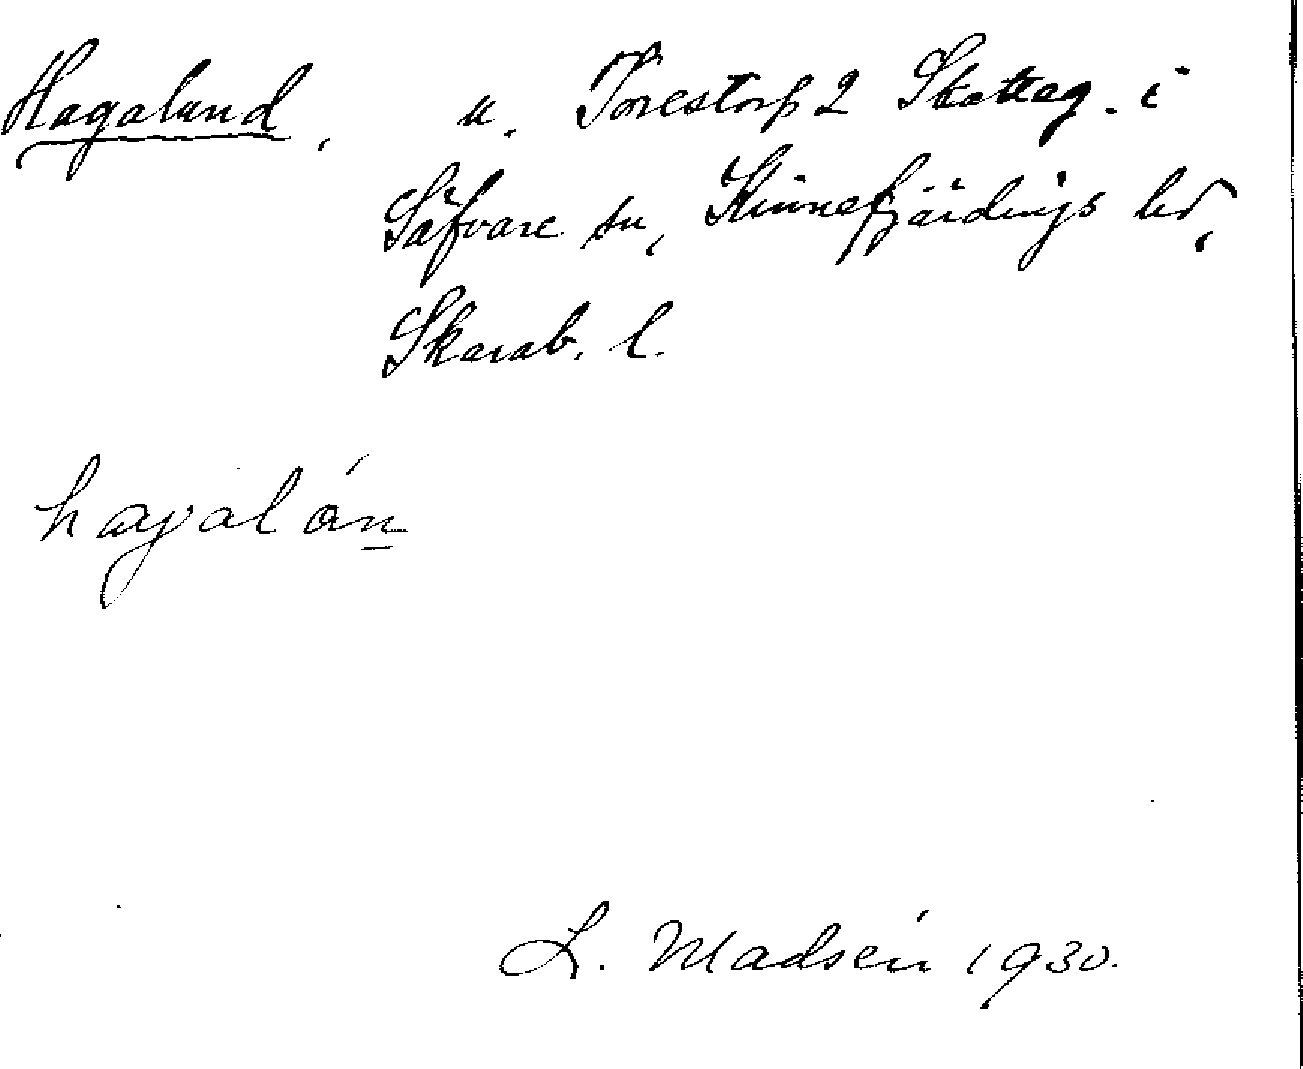 Hagalund, u. Torestorp 2 Skatteg. i
Säfvare sn, Kinnefjärdings hd,
Skarab. l.
hagalán
L. Madsén 1930.